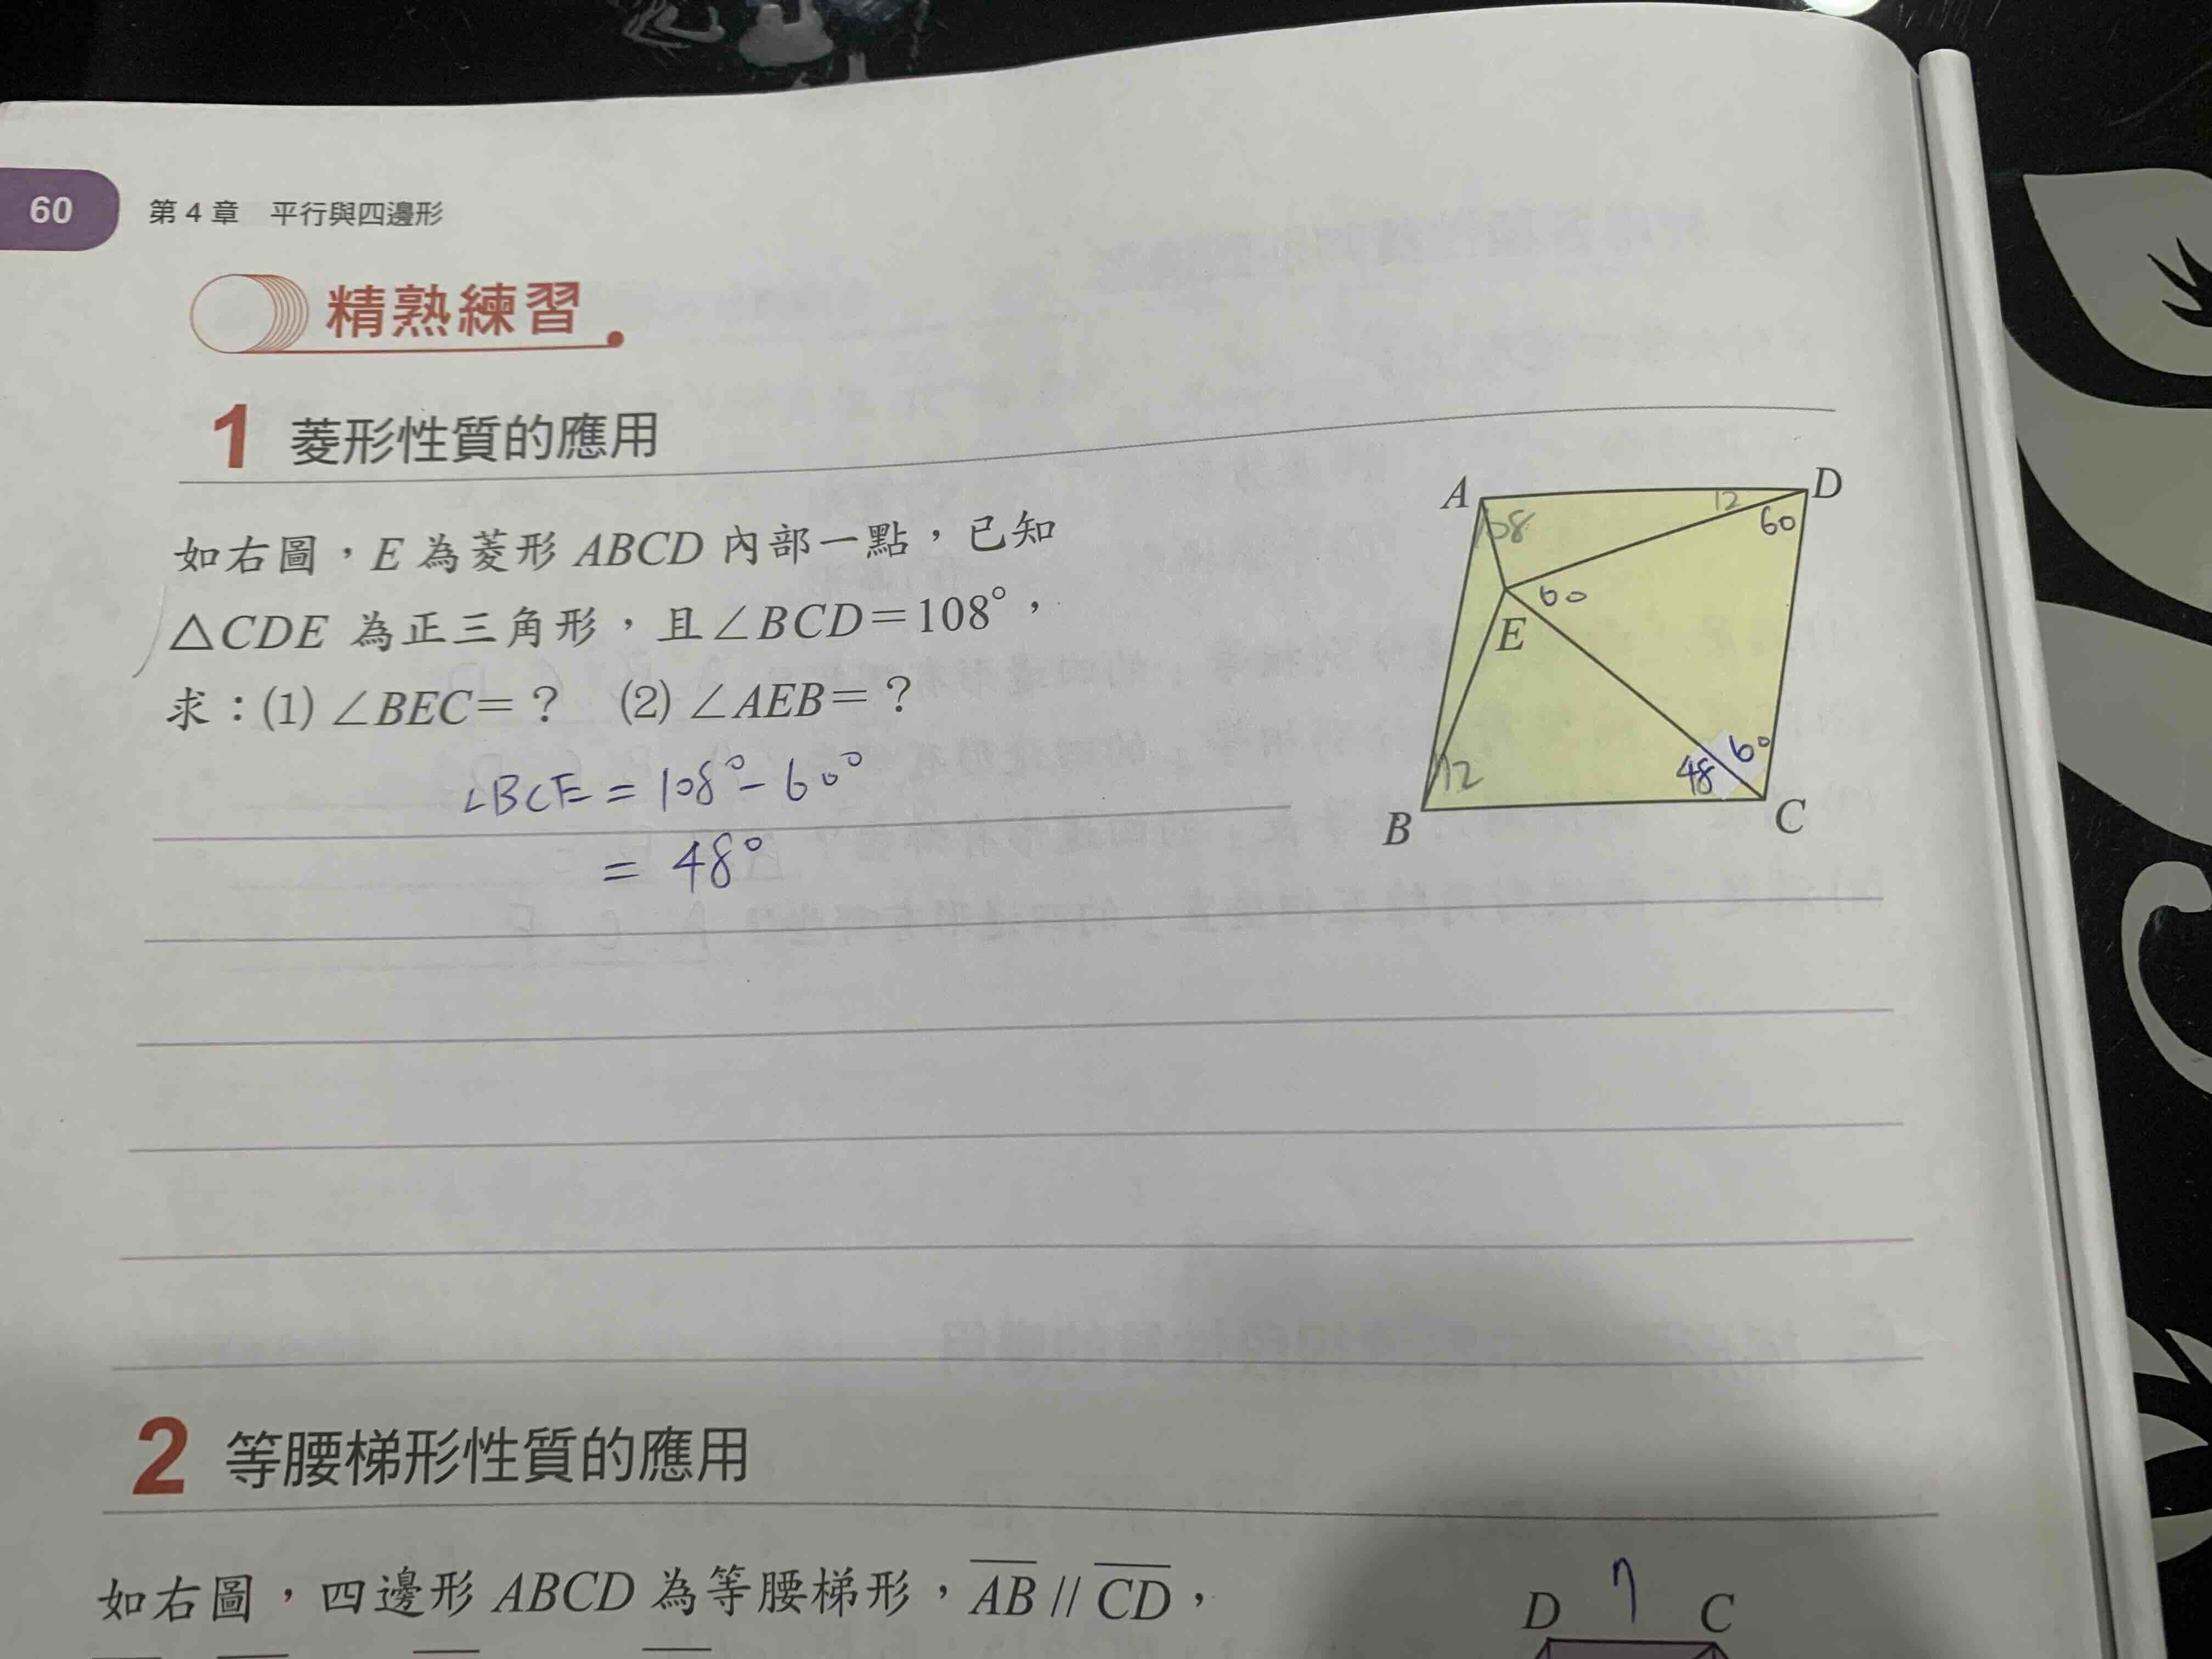 60 第 4 章 平行與四邊形
精熟練習
1 菱形性質的應用
如右圖，E 為菱形 ABCD 內部一點，已知
△CDE 為正三角形，且∠BCD＝108°，
求：(1) ∠BEC＝？ (2) ∠AEB＝？
∠BCE = 108° - 60°
= 48°
A
D
108
12
60
60
E
12
48
60
B
C
2 等腰梯形性質的應用
如右圖，四邊形 ABCD 為等腰梯形，AB // CD，
7
D
C